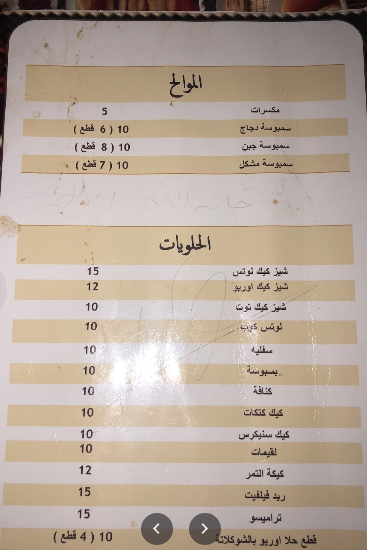 الموالح
مكسرات 5
سمبوسة دجاج 10 ( 6 قطع )
سمبوسة جبن 10 ( 8 قطع )
سمبوسة مشكل 10 ( 7 قطع )
الحلويات
شيز كيك لوتس 15
شيز كيك اوريو 12
شيز كيك توت 10
لوتس كوب 10
سفليه 10
بسبوسة 10
كنافة 10
كيك كتكات 10
كيك سنيكرس 10
لقيمات 10
كيكة التمر 12
ريد فيلفيت 15
تراميسو 15
قطع حلا اوريو بالشوكلاتة 10 ( 4 قطع )